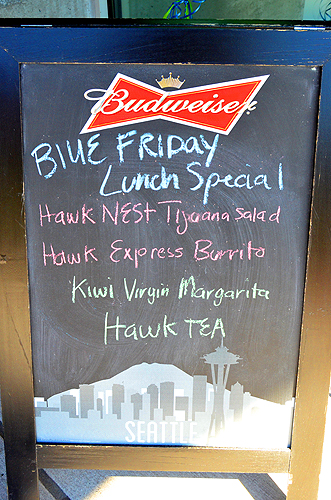 Budweiser
BlUE FRIDAY
Lunch Special
Hawk NEST Tijuana Salad
Hawk Express Burrito
Kiwi Virgin Margarita
Hawk TEA
SEATTLE